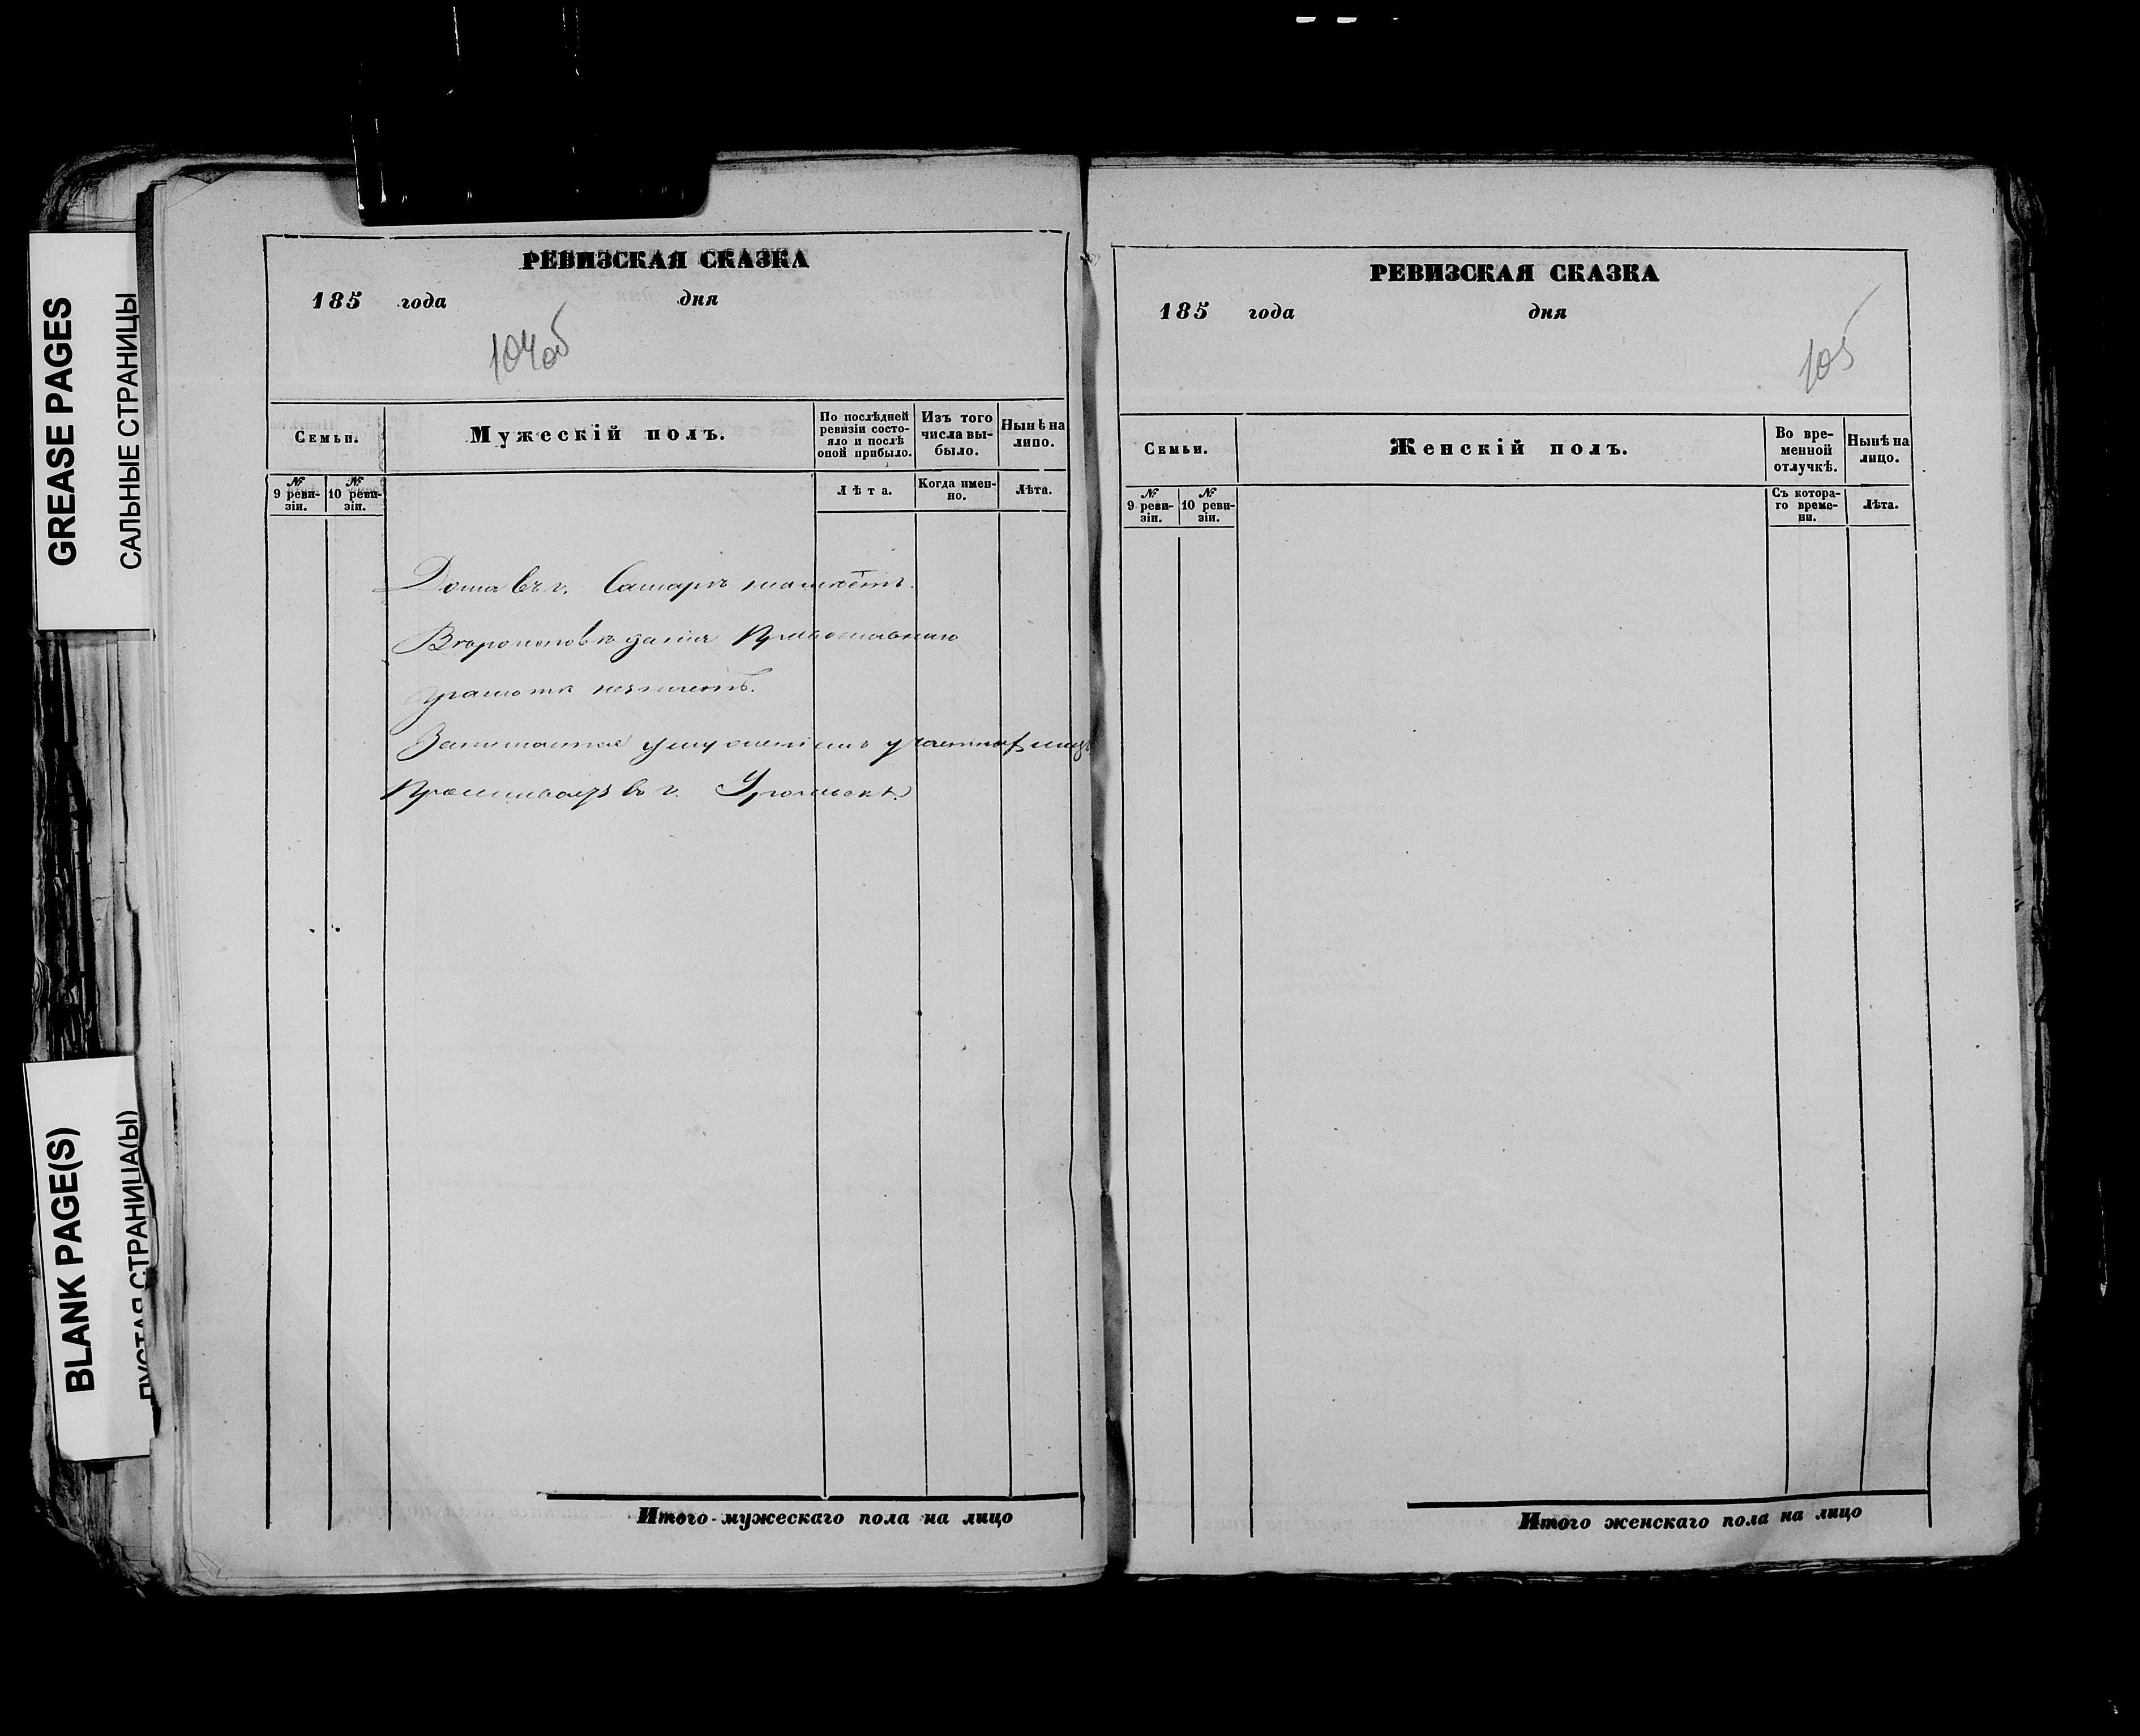 GREASE PAGES
САЛЬНЫЕ СТРАНИЦЫ
BLANK PAGE(S)
ПУСТАЯ СТРАНИЦА(Ы)
РЕВИЗСКАЯ СКАЗКА
185 года дня
104об
Семьи.
Мужескій полъ.
По послѣдней
ревизіи состо-
яло и послѣ
оной прибыло.
Изъ того
числа вы-
было.
Нынѣ на
лицо.
№
9 реви-
зіи.
№
10 реви-
зіи.
Лѣта.
Когда имен-
но.
Лѣта.
Дома въ г. Самарѣ неимѣетъ.
Вѣроисповѣданія Православнаго
грамотѣ незнаетъ.
Занимается услуженіемъ у частныхъ лицъ
Проживаетъ въ г.
Итого мужескаго пола на лицо
РЕВИЗСКАЯ СКАЗКА
185 года дня
105
Семьи.
Женскій полъ.
Во вре-
менной
отлучкѣ.
Нынѣ на
лицо.
№
9 реви-
зіи.
№
10 реви-
зіи.
Съ котора-
го време-
ни.
Лѣта.
Итого женскаго пола на лицо